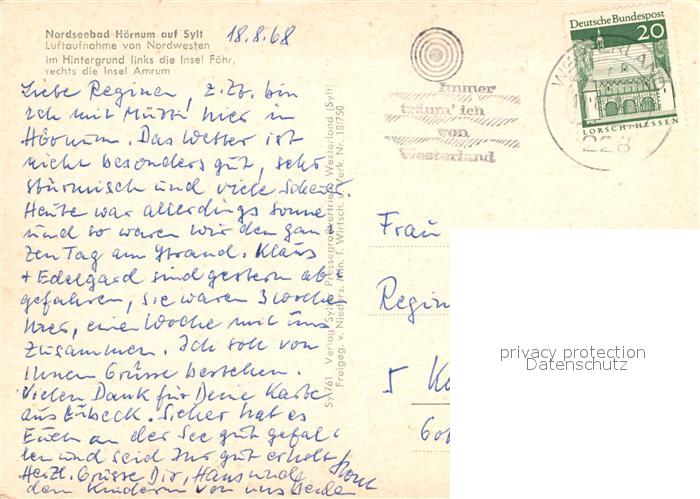 Nordseebad Hörnum auf Sylt
Luftaufnahme von Nordwesten
im Hintergrund links die Insel Föhr,
rechts die Insel Amrum
18.8.68
Liebe Regina, z.Zt. bin
ich mit Mutti hier in
Hörnum. Das Wetter ist
nicht besonders gut, sehr
stürmisch und viele Schauer.
Heute war allerdings Sonne
und so waren wir den gan-
zen Tag am Strand. Klaus
+ Edelgard sind gestern ab-
gefahren, sie waren 3 Wochen
hier, eine Woche mit uns
zusammen. Ich soll von
Ihnen Grüsse bestellen.
Vielen Dank für Deine Karte
aus Lübeck. Sicher hat es
Euch an der See gut gefal-
len und seid Ihr gut erholt
Herzl. Grüsse Dir, Hans und
den Kindern von uns beiden
Sy1761 Verlag Sylter Pressegroßvertrieb, Westerland (Sylt)
Freigeg. v. Nieders. Min. f. Wirtsch. u. Verk. Nr. 18/750
Immer
träum' ich
von
Westerland
Deutsche Bundespost
20
LORSCH/HESSEN
WESTERLAND
228
Frau
Regin
5 K
privacy protection
Datenschutz